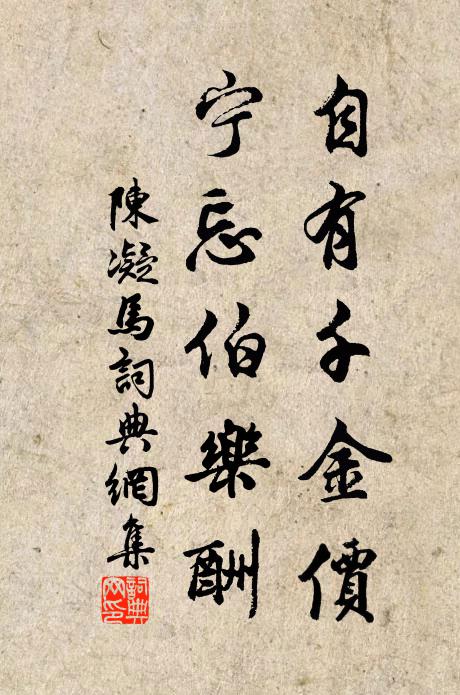 自有千金價
宁忘伯樂酬
陳凝馬詞典網集
詞典網印